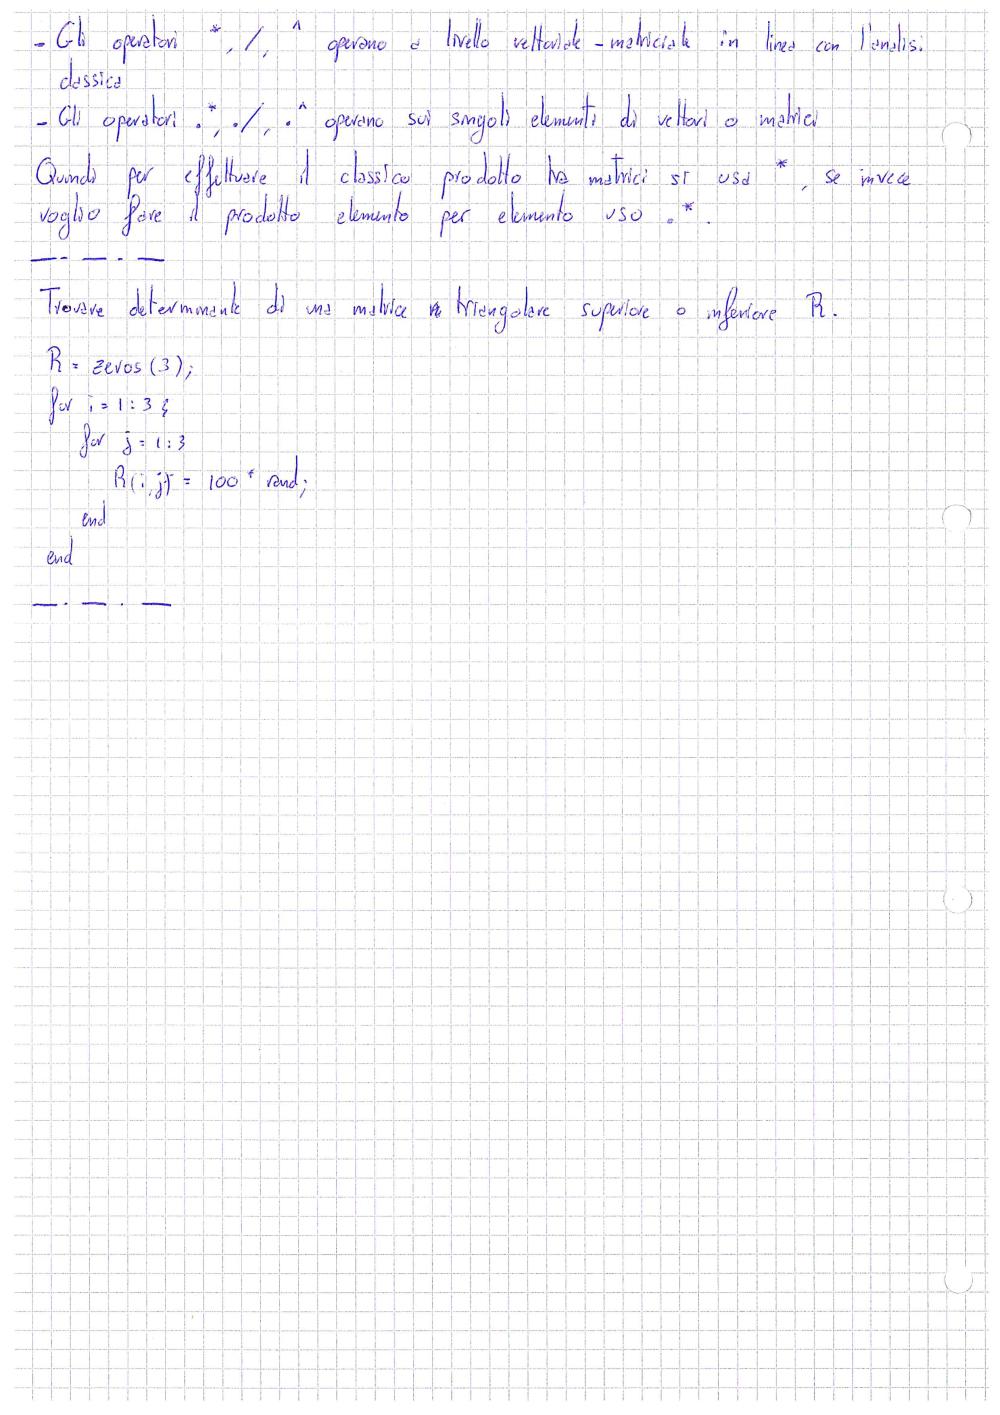 - Gli operatori *, /, ^ operano a livello vettoriale-matriciale in linea con l'analisi
classica
- Gli operatori .*, ./, .^ operano sui singoli elementi di vettori o matrici
Quindi per effettuare il classico prodotto tra matrici si usa *, se invece
voglio fare il prodotto elemento per elemento uso .*.
Trovare determinante di una matrice triangolare superiore o inferiore R.
R = zeros(3);
for i = 1:3
for j = 1:3
R(i,j) = 100 * rand;
end
end